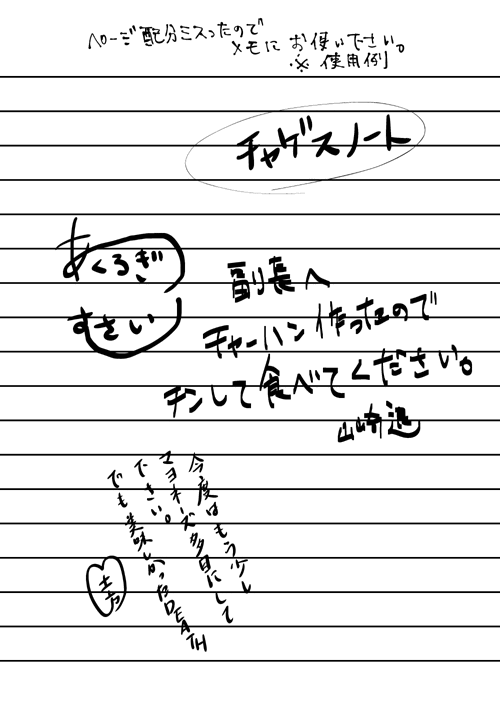 ページ配分ミスったので
メモに お使い下さい。
※使用例
チャゲスノート
あくろぎ
すさい
副長へ
チャーハン作ったので
チンして食べてください。
山崎退
今度はもう少し
マヨネーズ多目にして
下さい。
でも美味しかったDEATH
土方